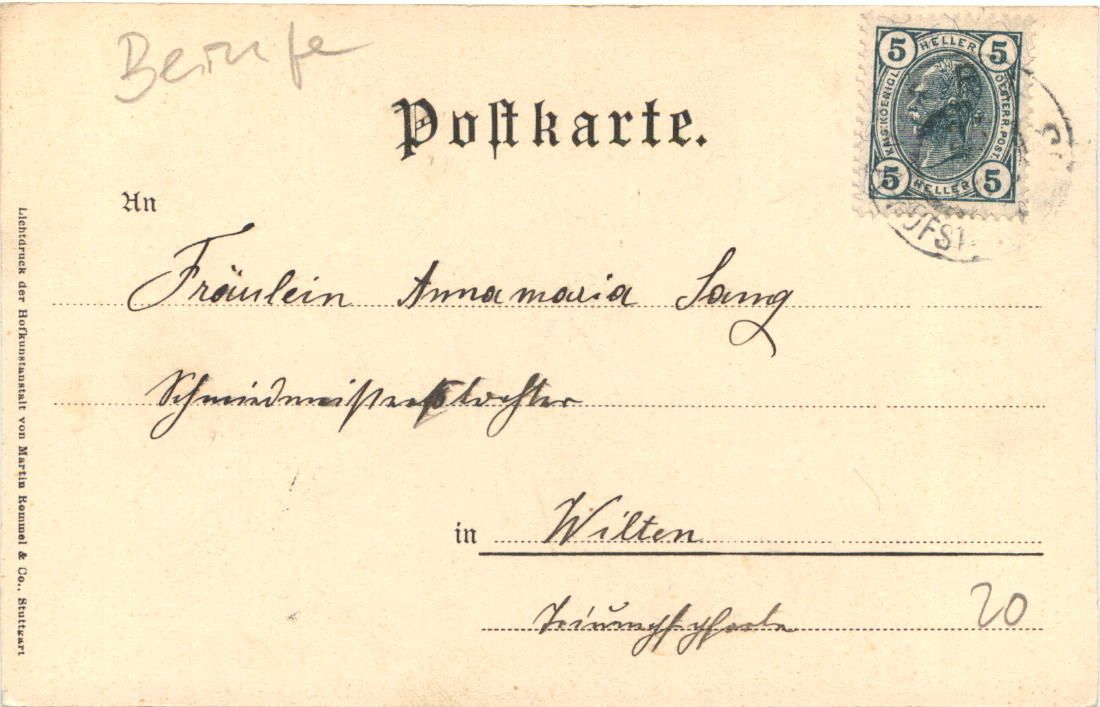 Berufe
Postkarte.
5 HELLER 5
KAIS. KOENIGL.
OESTERR. POST.
5 HELLER 5
An
Fräulein Annamaria Lang
Schmiedmeisterstochter
in Wilten
Triumphpforte
20
Lichtdruck der Hofkunstanstalt von Martin Rommel & Co., Stuttgart